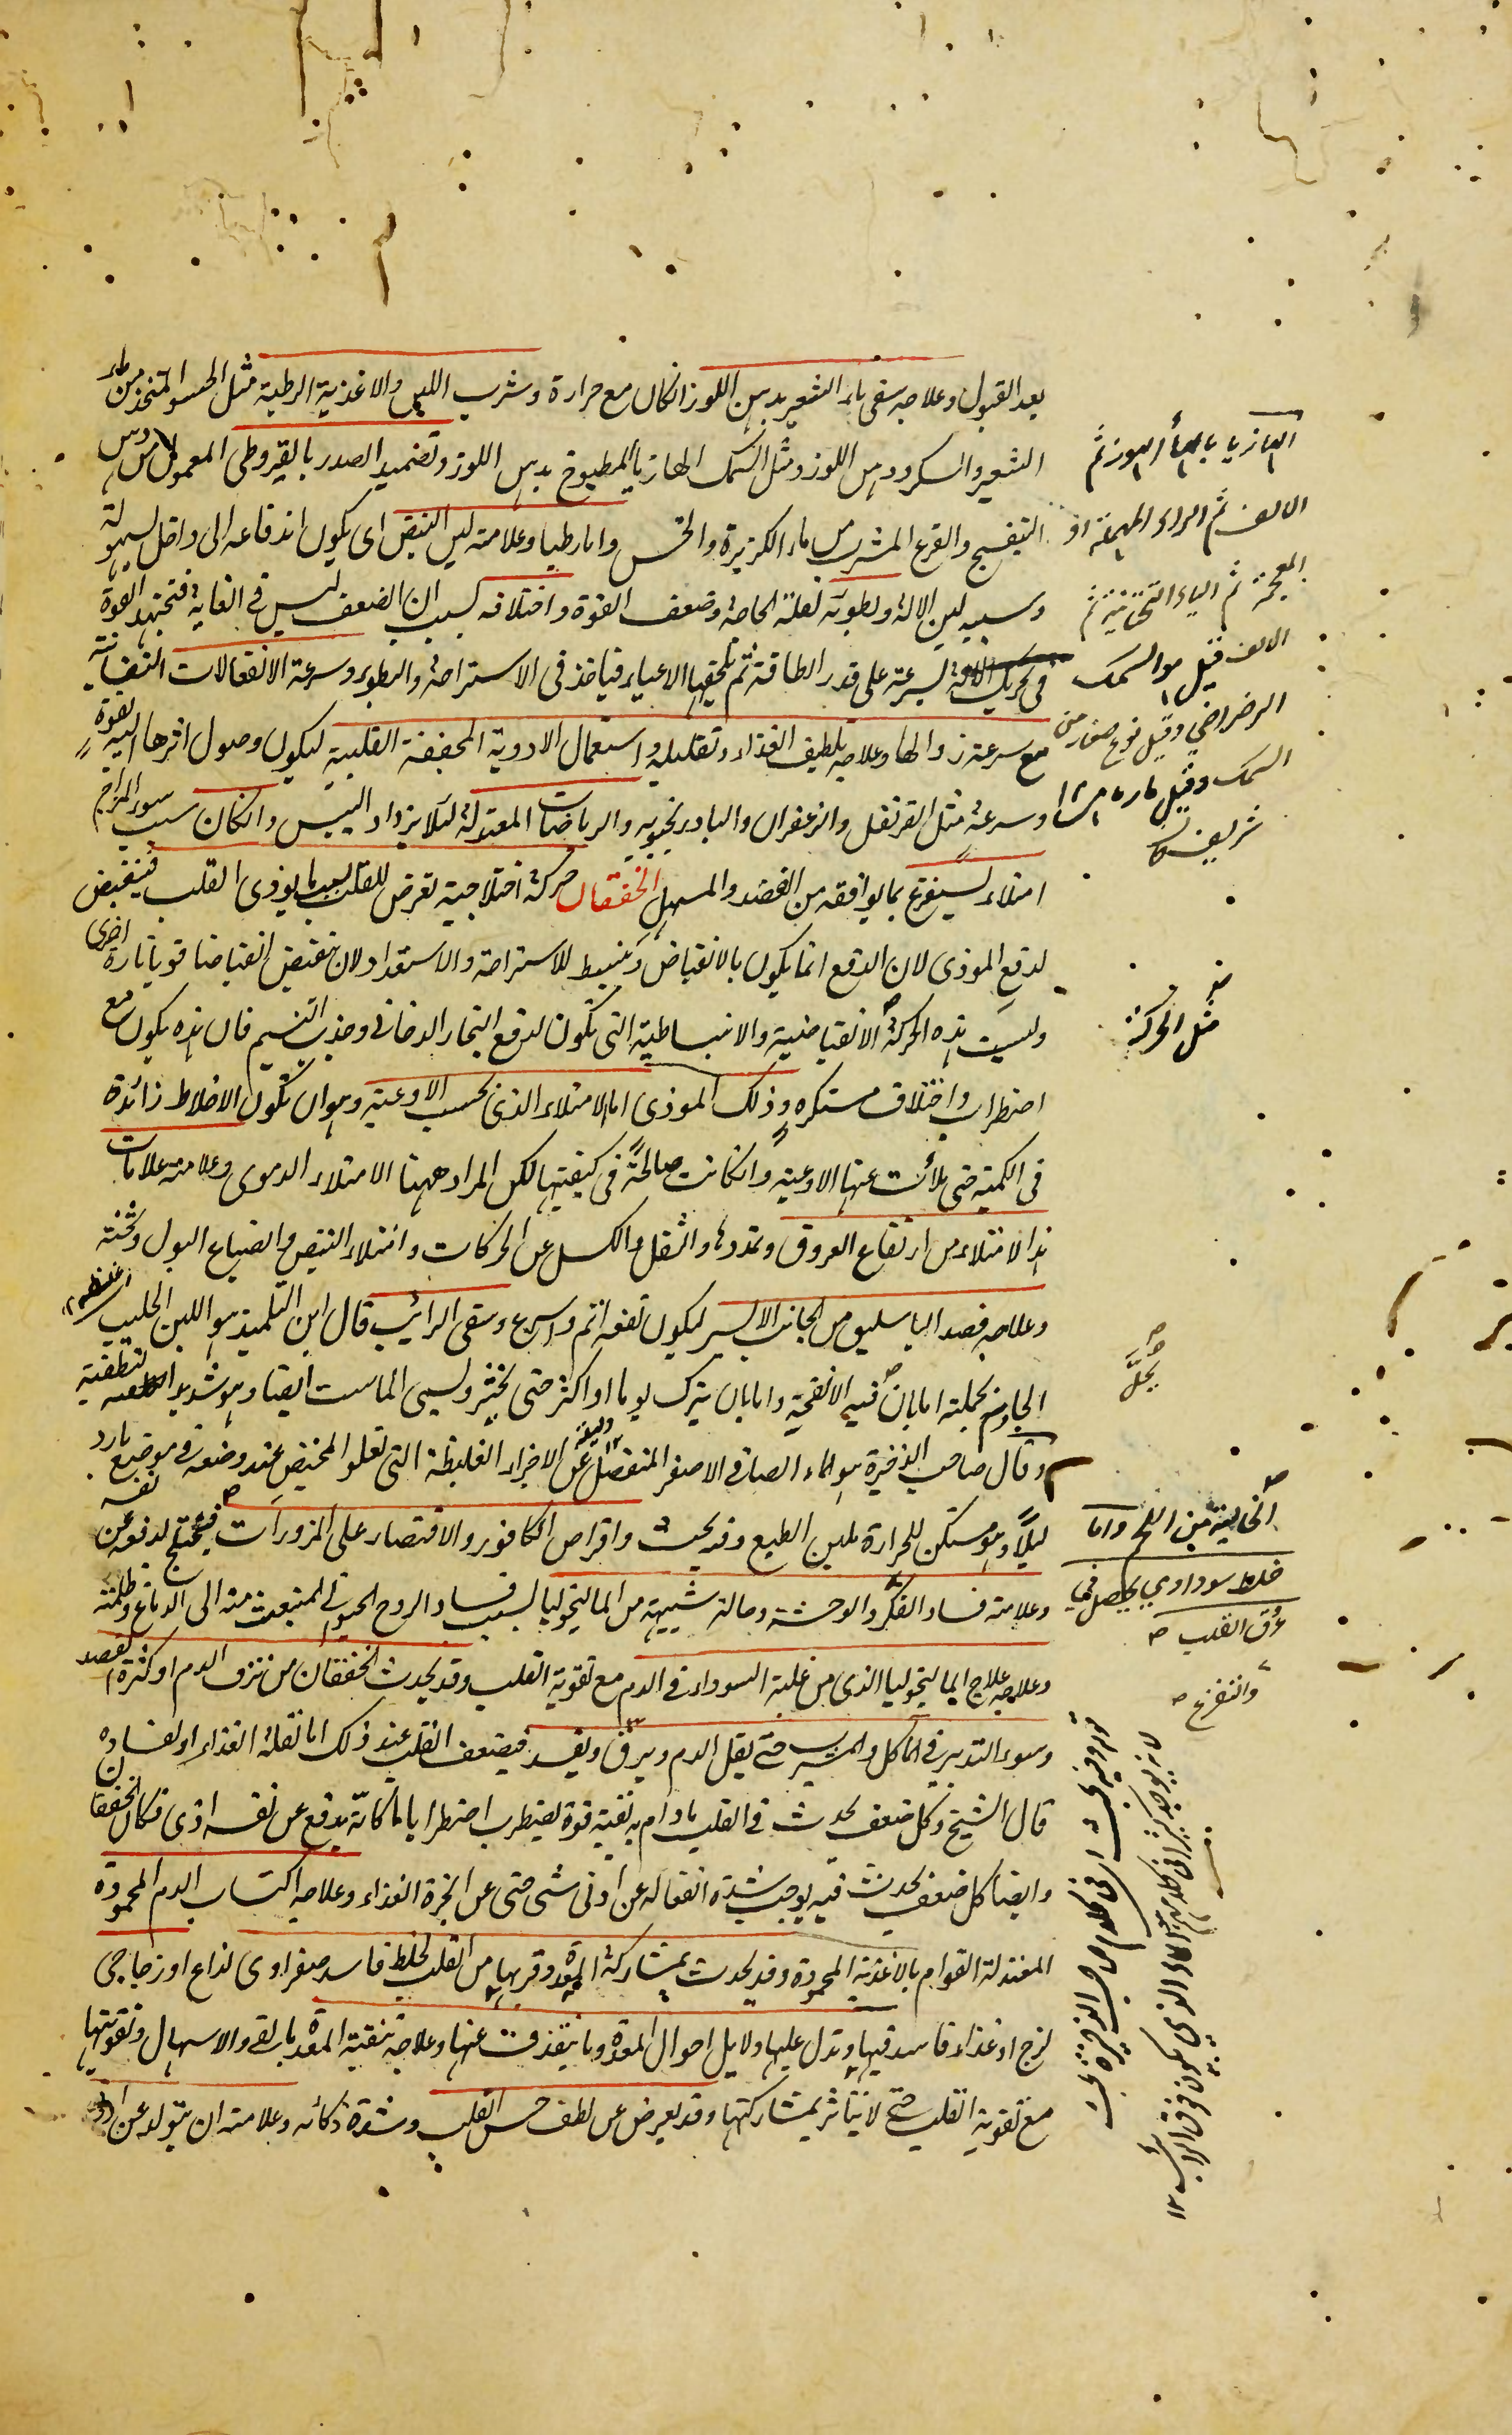 بعد القبول وعلاجه سقى ماء الشعير بدهن اللوز انكان مع حرارة وشرب اللبن والاغذية الرطبة مثل الحسو المتخذ من ماء
الشعير والسكر ودهن اللوز ومثل السمك الهازبا المطبوخ بدهن اللوز وتضميد الصدر بالقيروطى المعمول من دهن
البنفسج والقرع المشرب من ماء الكزبرة والخس واما رطبا وعلامته لين النبض اى يكون اندفاعه الى داخل بسهولة
وسببه لين الالة ولطوبته لعلة الحاجة وضعف القوة واختلافه بسبب ان الضعف ليس فى الغاية فتجتهد القوة
فى تحريك الالة بسرعة على قدر الطاقة ثم يلحقها الاعياء فياخذ فى الاستراحة والبطوء وسرعة الانفعالات النفسانية
مع سرعة زوالها وعلاجه تلطيف الغذاء وتقليله واستعمال الادوية المجففة القلبية ليكون وصول اثرها اليه بقوة
وسرعة مثل القرنفل والزعفران والبادرنجبويه والرياضات المعتدلة لئلا يزداد اليبس وانكان سبب سوء المزاج
امتلاء يستفرغ بما يوافقه من الفصد والمسهل الخفقان حركة اختلاجية تعرض للقلب بسبب ما يوذى القلب فينقبض
لدفع الموذى لان الدفع انما يكون بالانقباض وينبسط للاستراحة والاستعداد لان ينقبض انقباضا قويا تارة اخرى
وليست هذه الحركة الانقباضية والانبساطية التى تكون لدفع البخار الدخانى وجذب النسيم فان هذه يكون مع
اضطراب واختلاف مستكره وذلك الموذى اما الامتلاء الذى بحسب الاوعية وهو ان تكون الاخلاط زائدة
فى الكمية حتى ملأت عنها الاوعية وانكانت صالحة فى كيفيتها لكن المراد ههنا الامتلاء الدموى وعلامته علامات
هذا الامتلاء من ارتفاع العروق وتمددها والثقل والكسل عن الحركات وامتلاء النبض وانصباع البول وثخنه
وعلاجه فصد الباسليق من الجانب الايسر ليكون نفعه اتم واسرع وسقى الرائب قال ابن التلميذ هو اللبن الحليب
الجاوش بجملته اما بان فيه الانفحة واما بان يترك يوما او اكثر حتى يخثر ويسمى الماست ايضا وهو شديد التطفية
وقال صاحب الذخيرة هو الماء الصافى الاصفر المنفصل عن الاجزاء الغليظة التى تعلو المخيض عند وضعه فى موضع بارد
ليلا وهو مسكن للحرارة ملين الطبع وفيه بحث واقراص الكافور والاقتصار على المزورات فيحتاج لدفعه عن نفسه
وعلامته فساد الفكر والوحشة وحالة شبيهة من الماليخوليا بسبب فساد الروح الحيوانى المنبعث منه الى الدماغ وظلمته
وعلاجه علاج الماليخوليا الذى من غلبة السوداء فى الدم مع تقوية القلب وقد يحدث الخفقان من نزف الدم او كثرة الفصد
وسوء التدبير فى الماكل والمشرب حتى يقل الدم ويرق ويفسد فيضعف القلب عند ذلك اما لقلة الغذاء او لفساده
قال الشيخ وكل ضعف يحدث فى القلب مادام به بقية قوة يضطرب اضطرابا ما كانه يدفع عن نفسه اذى فكان الخفقان
وايضا كل ضعف يحدث فيه يوجب شدة انفعاله عن ادنى شى حتى عن ابخرة الغذاء وعلاجه اكتساب الدم المحمودة
المعتدلة القوام بالاغذية المحمودة وقد يحدث بمشاركة المعدة وقربها من القلب لخلط فاسد صفراوى لذاع او زجاجى
لزج او غذاء فاسد فيها وتدل عليها ولايل احوال المعدة وما ينقذف عنها وعلاجه تنقية المعدة بالقى والاسهال وتقويتها
مع تقوية القلب حتى لا يتاثر بمشاركتها وقد يعرض عن لطف حس القلب وشدة ذكائه وعلامته ان يتولد عن
الهازبا بالهاء الهوز ثم
الالف ثم الزاء المهملة او
المعجمة ثم الياء التحتية ثم
الالف قيل هو السمك
الرضراضي وقيل نوع صغار من
السمك وقيل مارماهى
شريف
مثل الحركة
الخالية من اللحم واما
خلط سوداوي يحصل في
عرق القلب
والتفزع